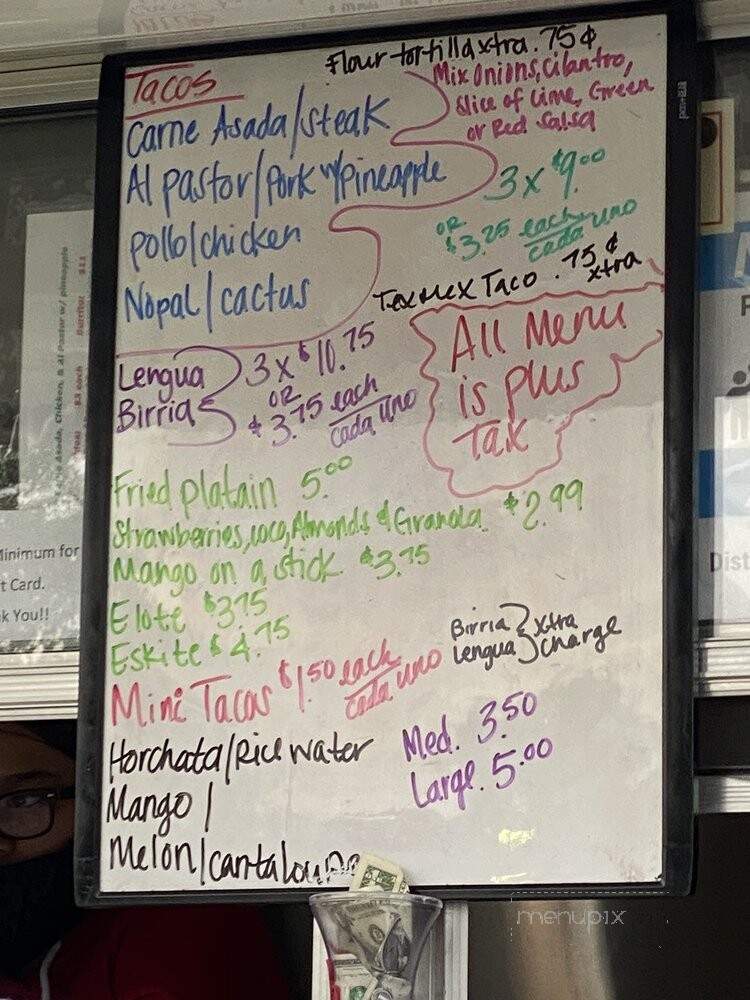 Flour tortilla xtra .75¢
Tacos
Mix Onions, cilantro,
Slice of Lime, Green
or Red Salsa
Carne Asada/steak
Al pastor/Pork w/pineapple
3 x $9.00
pollo/chicken
OR
$3.25 each
cada uno
Nopal/cactus
TexMex Taco .75¢
xtra
All Menu
is plus
Tax
Lengua
Birria
3 x $10.75
OR
$3.75 each
cada uno
Fried platain 5.00
Strawberries, coco, Almonds & Granola. $2.99
Mango on a stick. $3.75
Elote $3.75
Eskite $4.75
Birria
Lengua
xtra
charge
Mini Tacos $1.50 each
cada uno
Horchata/Rice water
Med. 3.50
Mango/
Large. 5.00
Melon/cantaloupe
Asada, Chicken, & Al Pastor w/ pineapple
$3 each
Burritos
$11
Minimum for
t Card.
k You!!
Dist
menupix